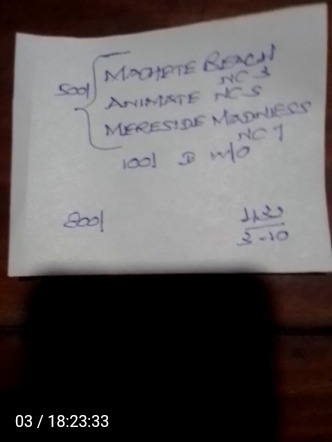 500/ MACHETE BEACH
NC 3
ANIMATE NC 5
MERESIDE MADNESS
NC 7
100/ D W/O
800/
3-10
03 / 18:23:33